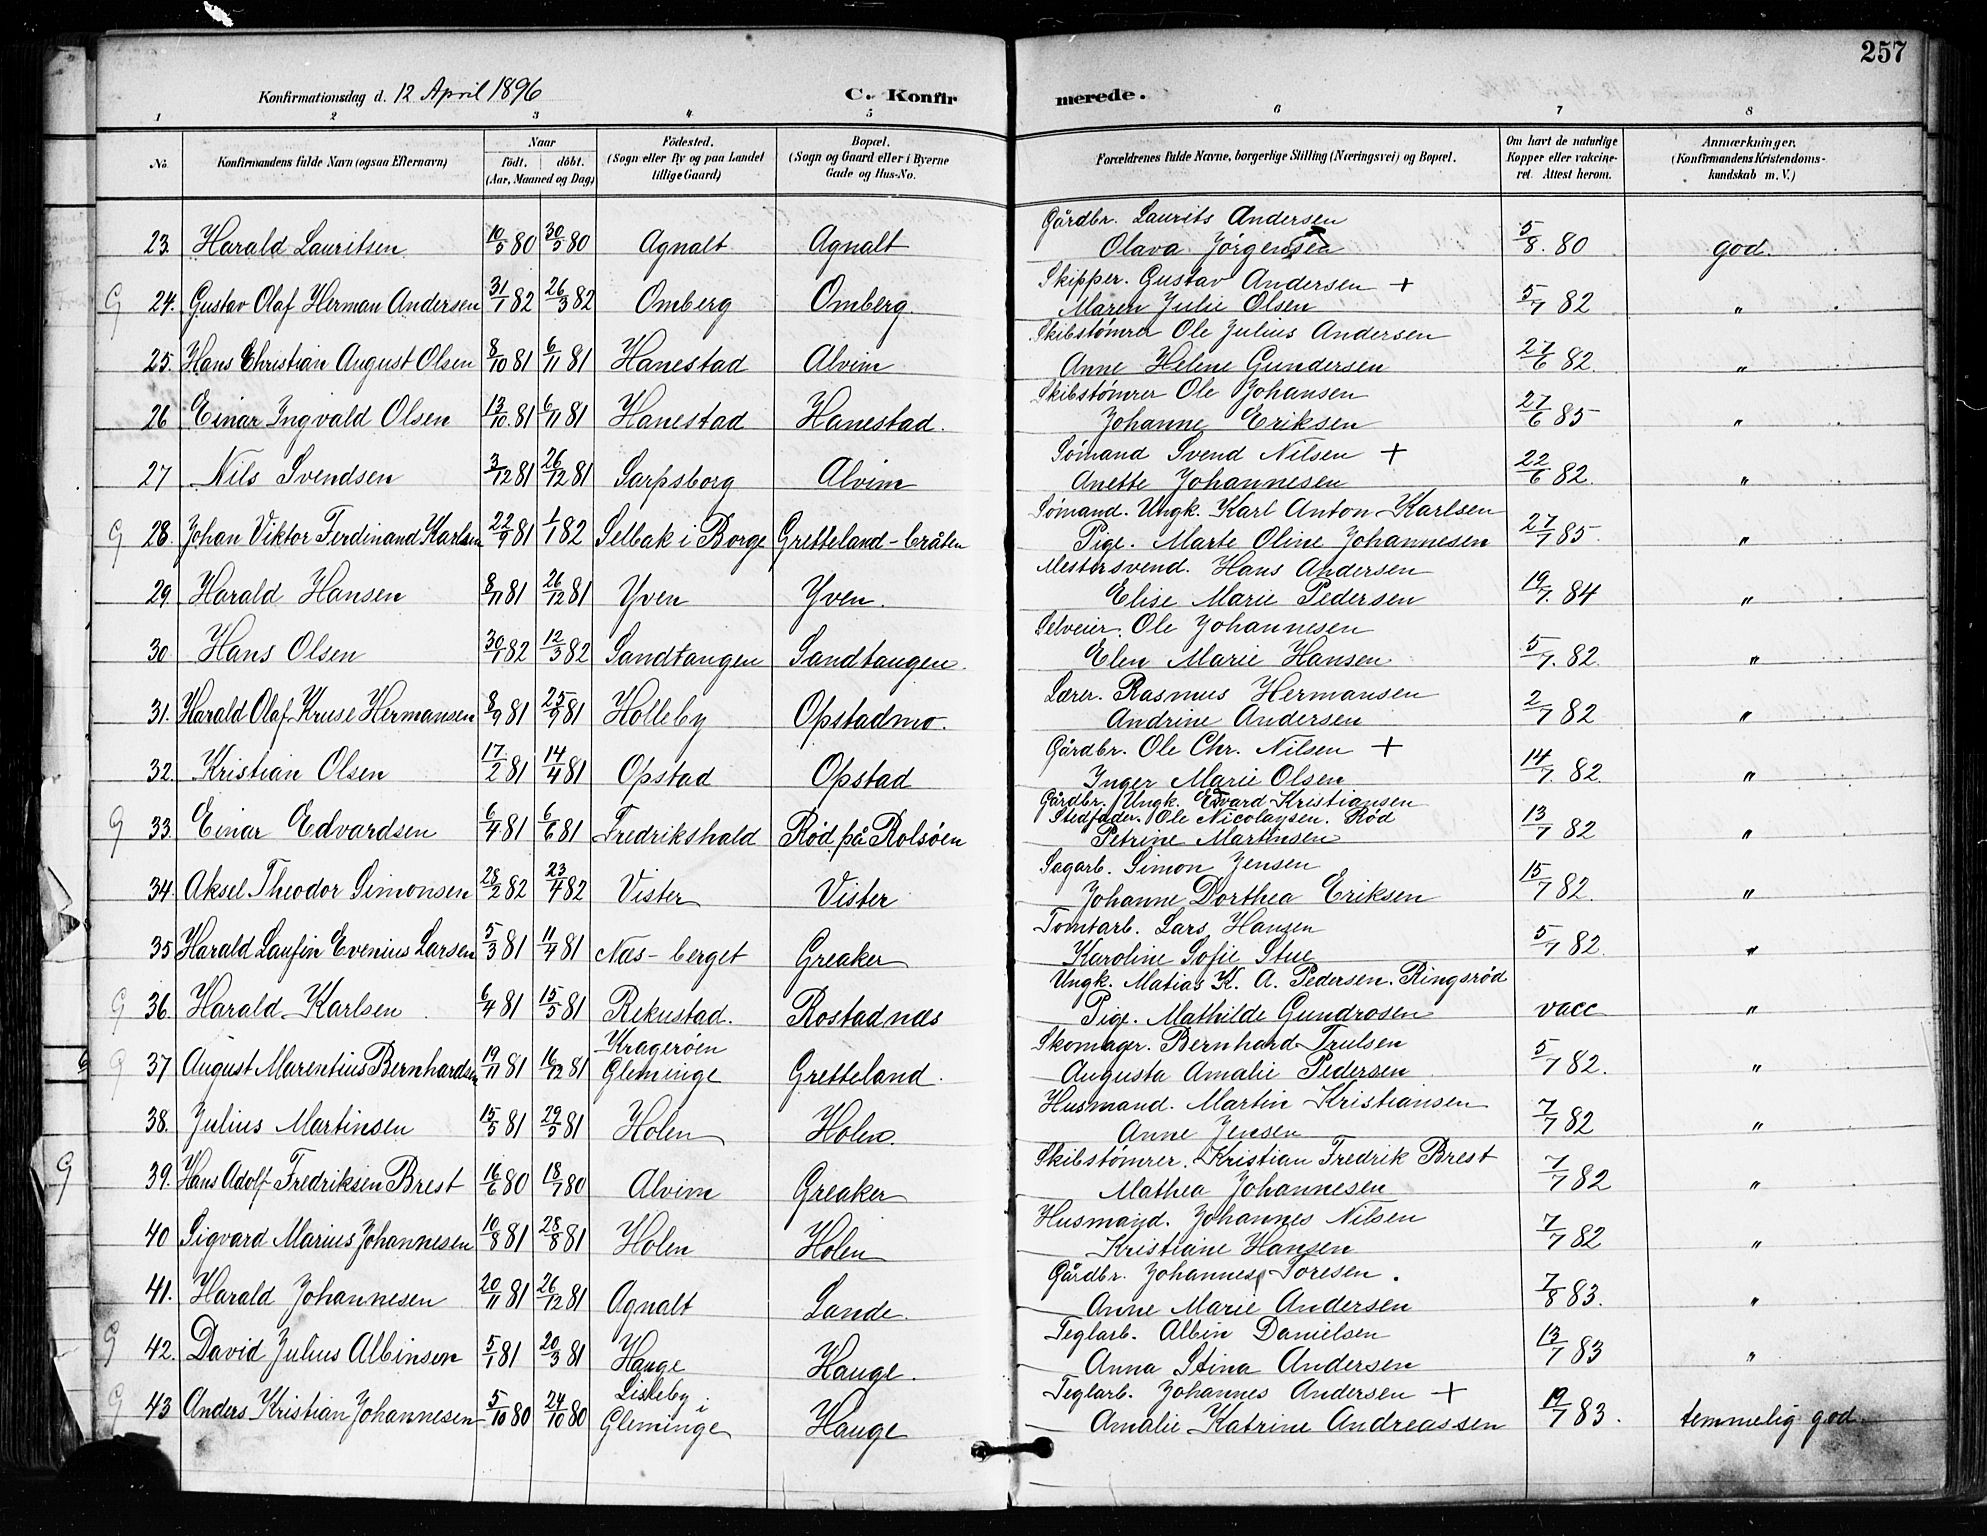 257
Konfirmationsdag d. 12 April 1896
C. Konfir
merede.
1 2 3 4 5 6 7 8
No. Konfirmandens fulde Navn (ogsaa Efternavn) Naar födt. döbt. (Aar, Maaned og Dag) Födested. (Sogn eller By og paa Landet tillige Gaard) Bopæl. (Sogn og Gaard eller i Byerne Gade og Hus-No. Forældrenes fulde Navne, borgerlige Stilling (Næringsvei) og Bopæl. Om havt de naturlige Kopper eller vakcineret. Attest herom. Anmærkninger. (Konfirmandens Kristendomskundskab m. V.)
Gårdbr. Laurits Andersen
23. Harald Lauritsen 10/5 80 30/5 80 Agnalt Agnalt Olava Jörgensen 5/8. 80 god.
Skipper. Gustav Andersen +
G 24. Gustav Olaf Herman Andersen 31/1 82 26/3 82 Omberg Omberg. Maren Julie Olsen 5/7 82 "
Skibstömrer Ole Julius Andersen
25. Hans Christian August Olsen 8/10 81 6/11 81 Hanestad Alvim Anne Helene Gundersen 27/6 82. "
Skibstömrer Ole Johansen
26 Einar Ingvald Olsen 13/10. 81 6/11 81 Hanestad Hanestad. Johanne Eriksen 27/6 85 "
Sömand Svend Nilsen +
27 Nils Svendsen 3/12 81 26/12 81 Sarpsborg Alvim Anette Johannesen 22/6 82. "
Sömand. Ungk. Karl Anton Karlsen
G 28. Johan Viktor Ferdinand Karlsen 22/9 81 1/1 82 Selbak i Borge Gretteland-bråten Pige. Marte Oline Johannesen 27/7 85. "
Mestersvend. Hans Andersen
29. Harald Hansen 8/11 81 26/12 81 Yven Yven. Elise Marie Pedersen 19/7. 84 "
Selveier. Ole Johannesen
30 Hans Olsen 30/1 82 12/3 82 Sandtangen Sandtangen. Elen Marie Hansen 5/7. 82. "
Lærer. Rasmus Hermansen
31. Harald Olaf Kruse Hermansen 8/9 81 25/9 81 Holleby Opstadmo. Andrine Andersen 2/7 82 "
Gårdbr. Ole Chr. Nilsen +
32. Kristian Olsen 17/2 81 14/4 81 Opstad Opstad Inger Marie Olsen 14/7. 82. "
Gårdbr. Ungk. Edvard Kristiansen
Stedfader. Ole Nicolaysen. Röd
G 33. Einar Edvardsen 6/4 81 6/6 81 Fredrikshald Röd på Rolsöen Petrine Martinsen 13/7 82 "
Sagarb. Simon Jensen
34. Aksel Theodor Simonsen 28/2 82 23/4 82 Vister Vister Johanne Dorthea Eriksen 15/7 82. "
Tomtarb. Lars Hansen
35 Harald Laufin Evenius Larsen 5/3 81 11/4 81 Næs-berget Greaker Karoline Sofie Stue 5/7 82. "
Ungk. Matias K. A. Pedersen. Ringsröd
G 36. Harald Karlsen 6/4 81 15/5 81 Rekustad. Rostadnæs Pige. Mathilde Gundrosen vacc "
Kragerøen Skomager. Bernhard Trulsen
G 37 August Marentius Bernhardsen 19/11 81 16/12 81 Gleminge Gretteland. Augusta Amalie Pedersen 5/7 82. "
Husmand. Martin Kristiansen
38. Julius Martinsen 15/5 81 29/5 81 Holen Holen. Anne Jensen 7/7 82 "
Skibstömrer. Kristian Fredrik Brest
G 39. Hans Adolf Fredriksen Brest 16/6 80 18/7 80 Alvim Greaker Mathea Johannesen 7/7 82 "
Husmand. Johannes Nilsen
40 Sigvard Marius Johannesen 10/8 81 28/8 81 Holen Holen Kristiane Hansen 7/7 82 "
Gårdbr. Johannes Toresen.
41. Harald Johannesen 20/11 81 26/12 81 Agnalt Lande. Anne Marie Andersen 7/8 83. "
Teglarb. Albin Danielsen
G 42. David Julius Albinsen 5/1 81 20/3 81 Hauge Hauge. Anna Stina Andersen 13/7 83 "
Lisleby i Teglarb. Johannes Andersen +
G 43 Anders Kristian Johannesen 5/10 80 24/10 80 Gleminge Hauge Amalie Katrine Andreassen 19/7 83. temmelig god.